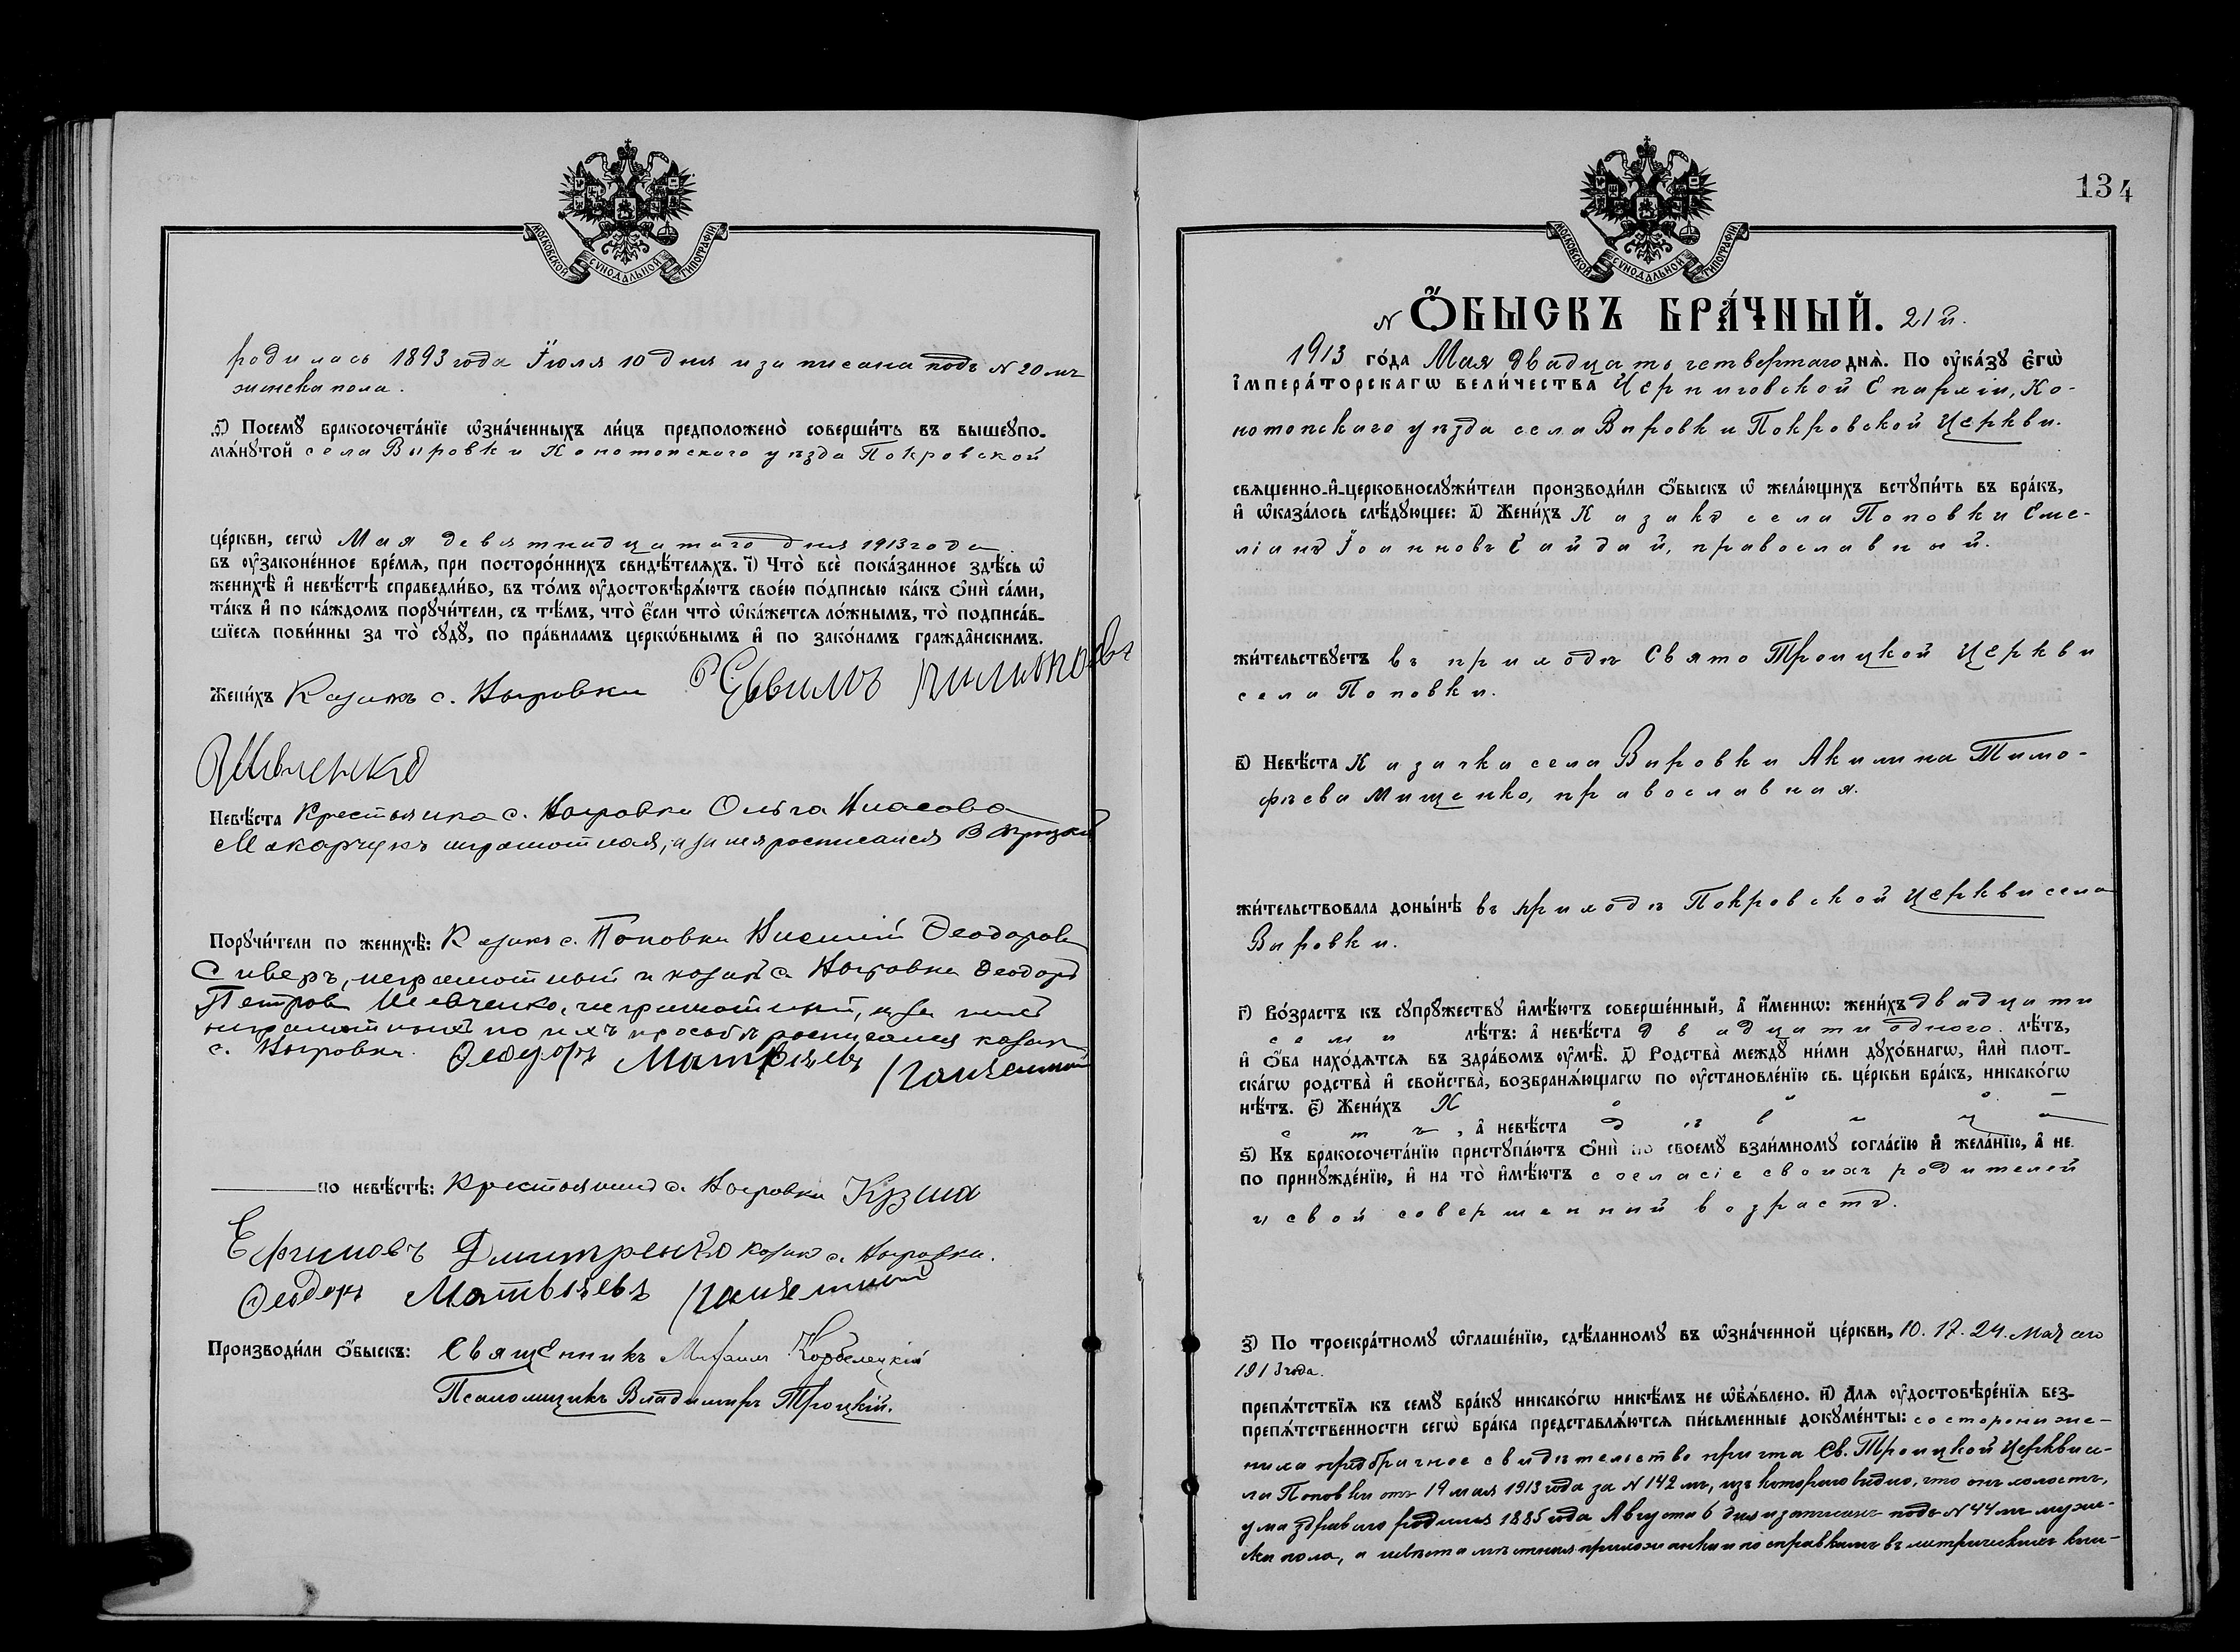 МОСКОВСКОЙ СѴНОДАЛЬНОЙ ТИПОГРАФІИ
родилась 1893 года Іюля 10 дня и записана подъ № 20 мъ
женска пола.
Ѳ҃) Посемꙋ̀ бракосочета́нїе ѡ҆зна́ченныхъ ли́цъ предположено̀ соверши́ть въ вышеꙋпо-
мѧ́нꙋтой села Выровки Конотопскаго уѣзда Покровской
це́ркви, сегѡ̀ Мая девятнадцатаго дня 1913 года
въ ᲂу҆законе́нное вре́мѧ, при посторо́ннихъ свидѣ́телѧхъ. І҃) Что̀ всѐ пока́занное здѣ́сь ѡ҆
женихѣ̀ и҆ невѣ́стѣ справедли́во, въ то́мъ ᲂу҆достовѣрѧ́ютъ свое́ю по́дписью ка́къ ѻ҆нѝ са́ми,
та́къ и҆ по ка́ждомъ порꙋчи́тели, съ тѣ́мъ, что̀ є҆́сли что̀ ѡ҆ка́жетсѧ ло́жнымъ, то̀ подписа́в-
шїесѧ пови́нны за то̀ сꙋдꙋ̀, по пра́виламъ церкѡ́внымъ и҆ по зако́намъ гражда̑нскимъ.
Жени́хъ Казакъ с. Выровки
Невѣ́ста Крестьянка с. Выровки Ольга Власова
Макарчукъ неграмотная, а за нея росписался В Троцкій
Порꙋчи́тели по женихѣ̀: Казакъ с. Поповки Ѳеодоровъ
Сиверъ, неграмотный и козакъ с. Выровки Ѳеодоръ
Петровъ Шевченко, неграмотный, а за нихъ
неграмотныхъ по ихъ просьбѣ росписался козакъ
с. Выровки. Ѳеодоръ Матвѣевъ
по невѣ́стѣ: Крестьянинъ с. Выровки Кузма
Ефимовъ Дмитренко козак с. Выровки.
Ѳеодоръ Матвѣевъ
Производи́ли ѻ҆́быскъ: Священникъ Михаилъ Корбелецкій
Псаломщикъ Владимиръ Троцкій.
134
МОСКОВСКОЙ СѴНОДАЛЬНОЙ ТИПОГРАФІИ
№ Ѻ҆́БЫСКЪ БРА́ЧНЫЙ. 21 й.
1913 го́да Мая двадцать четвертаго днѧ̀. По ᲂу҆ка́зꙋ є҆гѡ̀
і҆мпера́торскагѡ вели́чества Черниговской Епархіи, Ко-
нотопскаго уѣзда села Вировки Покровской Церкви.
свѧщенно-и҆-церковнослꙋжи́тели производи́ли ѻ҆́быскъ ѡ҆ жела́ющихъ встꙋпи́ть въ бра́къ,
и҆ ѡ҆каза́лось слѣ́дꙋющее: а҃) Жени́хъ Казакъ села Поповки Еме-
ліанъ Іоанновъ Гайдай, православный.
жи́тельствꙋетъ въ приходѣ Свято Троицкой Церкви
села Поповки.
в҃) Невѣ́ста Казачка села Вировки Акилина Тимо-
фѣева Мищенко, православная.
жи́тельствовала доны́нѣ въ приходѣ Покровской Церкви села
Вировки.
г҃) Во́зрастъ къ сꙋпрꙋ́жествꙋ и҆мѣ́ютъ соверше́нный, а҆̀ и҆́менно: жени́хъ двадцати
семи лѣ́тъ: а҆̀ невѣ́ста двадцати одного лѣ́тъ,
и҆ ѻ҆́ба нахо́дѧтсѧ въ здра́вомъ ᲂу҆мѣ̀. д҃) Родства̀ междꙋ̀ ни́ми дꙋхо́внагѡ, и҆лѝ плот-
ска́гѡ родства̀ и҆ сво́йства̀, возбранѧ́ющагѡ по ᲂу҆становле́нїю св. це́ркви бра́къ, никако́гѡ
нѣ́тъ. є҃) Жени́хъ Холо
стъ, а҆̀ невѣ́ста дѣвица
ѕ҃) Къ бракосочета́нїю пристꙋпа́ютъ ѻ҆нѝ по своемꙋ̀ взаи́мномꙋ согла́сїю и҆ жела́нїю, а҆̀ не
по принꙋжде́нїю, и҆ на то̀ и҆мѣ́ютъ согласіе своихъ родителей
и свой совершенний возрастъ.
з҃) По троекра́тномꙋ ѡ҆глаше́нїю, сдѣ́ланномꙋ въ ѡ҆зна́ченной це́ркви, 10. 17. 24. Мая сего
1913 года.
препѧ́тствїѧ къ семꙋ̀ бра́кꙋ никако́гѡ никѣ́мъ не ѡ҆б̾ѧ́влено. и҃) Длѧ ᲂу҆достовѣре́нїѧ без-
препѧ́тственности сегѡ̀ бра́ка представлѧ́ютсѧ пи́сьменные докꙋме́нты: со стороны же-
ниха предбрачное свидѣтельство причта Св. Троицкой Церкви се-
ла Поповки отъ 19 мая 1913 года за № 142 мъ, изъ котораго видно, что онъ холостъ,
ума здраваго родился 1885 года Августа 6 дня и записанъ подъ № 44 мъ муже-
ска пола, а невѣста мѣстная прихожанка и по справкамъ въ метрическихъ кни-